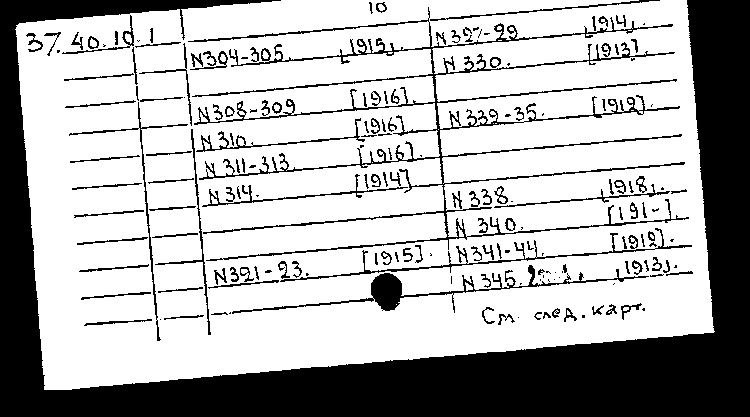 10
37.40.10.1
N304-305. [1915].
N308-309 [1916].
N310. [1916].
N311-313. [1916].
N314. [1914]
N321-23. [1915].
N327-29 [1914].
N330. [1913].
N332-35. [1912].
N338. [1918].
N340. [191-].
N341-44. [1912].
N345. [1913].
См. след. карт.